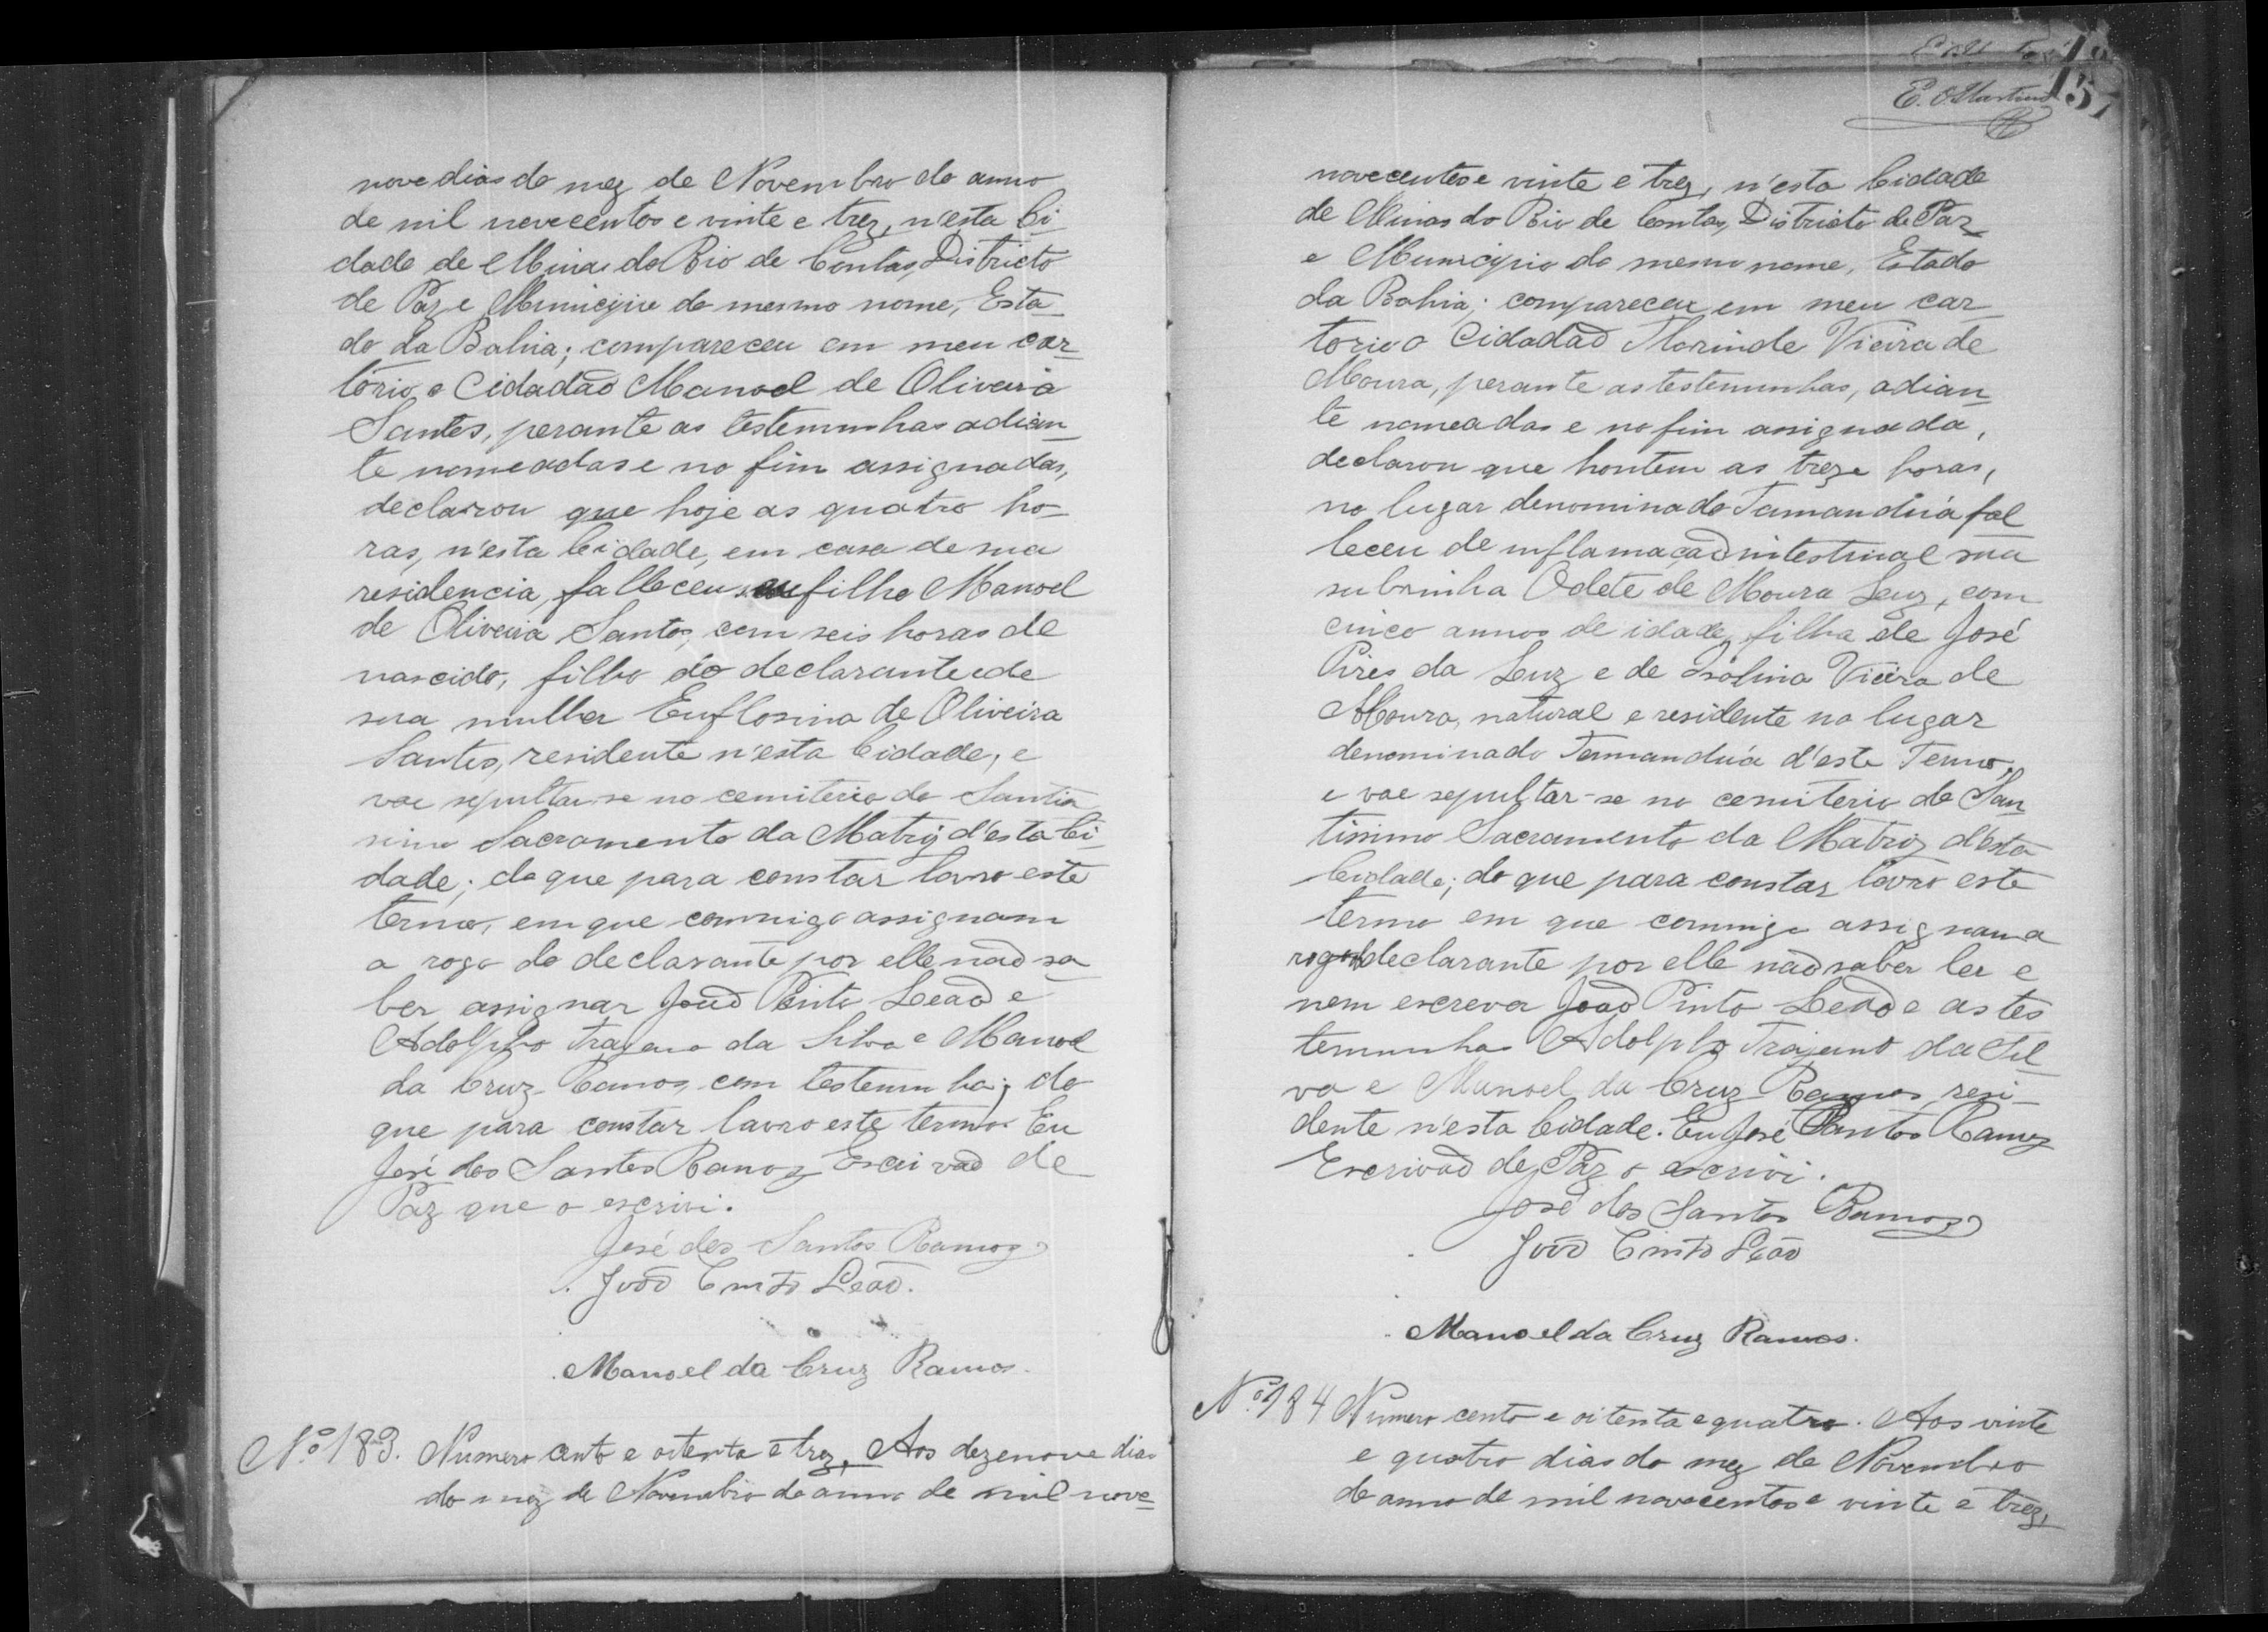 nove dias do mez de Novembro do anno
de mil novecentos e vinte e trez, n'esta Ci-
dade de Minas do Rio de Contas, Districto
de Paz e Municipio do mesmo nome, Esta-
do da Bahia; compareceu em meu car-
torio o Cidadão Manoel de Oliveira
Santos, perante as testemunhas adian-
te nomeadas e no fim assignadas,
declarou que hoje as quatro ho-
ras, n'esta Cidade, em casa de sua
residencia, falleceu seu filho Manoel
de Oliveira Santos, com seis horas de
nascido, filho do declarante e de
sua mulher Euflosina de Oliveira
Santos, residente n'esta Cidade, e
vae sepultar-se no cemiterio do Santis
simo Sacramento da Matriz d'esta Ci-
dade; do que para constar lavro este
termo, em que commigo assignam
a rogo do declarante por elle não sa-
ber assignar João Pinto Leão e
Adolpho Trajano da Silva e Manoel
da Cruz Ramos, com testemunha; do
que para constar lavro este termo. Eu
José dos Santos Ramos Escrivão de
Paz que o escrivi.
José dos Santos Ramos
João Pinto Leão.
Manoel da Cruz Ramos.
Nº 183. Numero cento e oitenta e trez, Aos dezenove dias
do mez de Novembro do anno de mil nove-
E. Martins
157
novecentos e vinte e trez, n'esta Cidade
de Minas do Rio de Contas, Districto de Paz
e Municipio do mesmo nome, Estado
da Bahia; compareceu em meu car-
torio o Cidadão Florinde Vieira de
Moura, perante as testemunhas, adian-
te nomeadas e no fim assignada,
declarou que hontem as treze horas,
no lugar denominado Tamanduá fal-
leceu de inflamação intestinal sua
subrinha Odete de Moura Luz, com
cinco annos de idade, filha de José
Pires da Luz e de Isolina Vieira de
Moura, natural e residente no lugar
denominado Tamanduá d'este Termo,
e vae sepultar-se no cemiterio do San-
tissimo Sacramento da Matriz d'esta
Cidade; do que para constar lavro este
termo em que commigo assignam a
rogo do declarante por elle não saber ler e
nem escrever João Pinto Leão e as tes
temunhas Adolpho Trajano da Sil-
va e Manoel da Cruz Ramos resi-
dente n'esta Cidade. Eu José Santos Ramos
Escrivão de Paz o escrivi.
José dos Santos Ramos
João Pinto Leão
Manoel da Cruz Ramos.
Nº 184 Numero cento e oitenta e quatro. Aos vinte
e quatro dias do mez de Novembro
do anno de mil novecentos e vinte e trez,